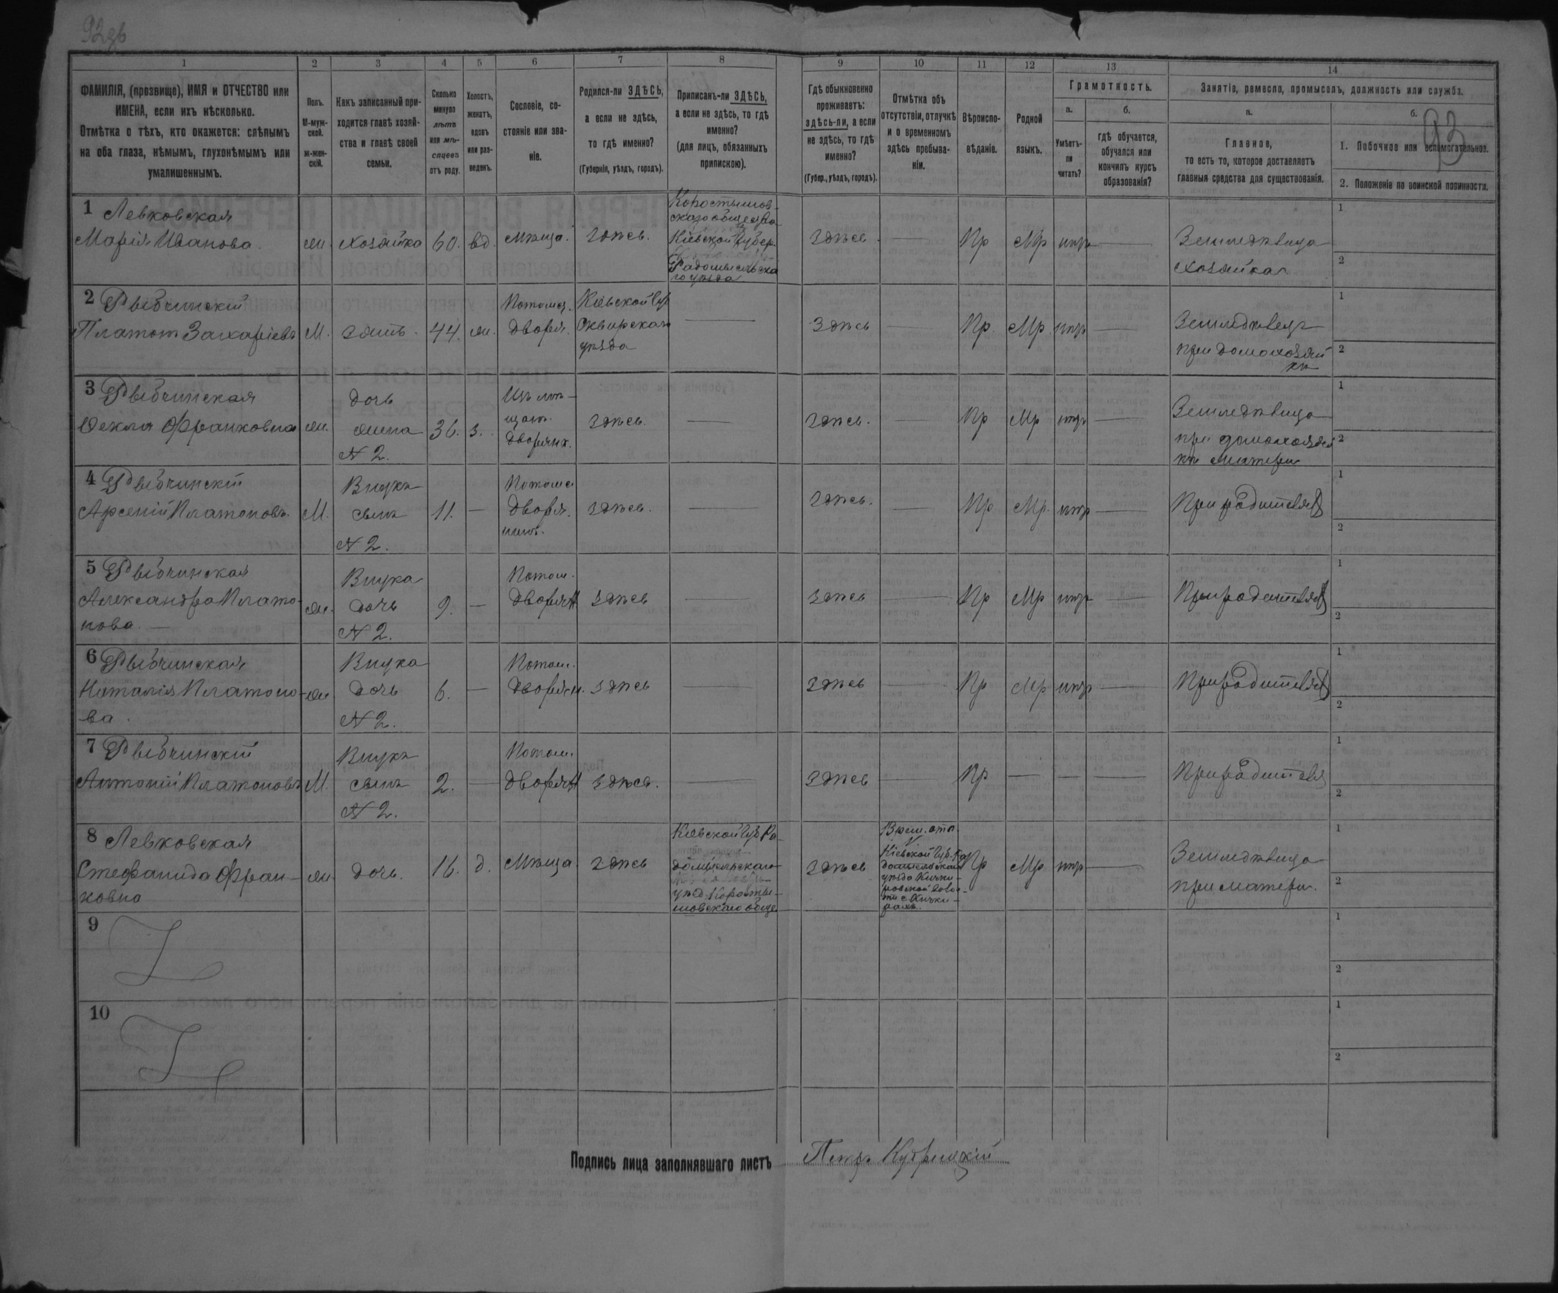 1 2 3 4 5 6 7 8 9 10 11 12 13 14
ФАМИЛІЯ, (прозвище), ИМЯ и ОТЧЕСТВО или
ИМЕНА, если ихъ нѣсколько.
Отмѣтка о тѣхъ, кто окажется: слѣпымъ
на оба глаза, нѣмымъ, глухонѣмымъ или
умалишеннымъ.
Полъ.
М-муж-
ской.
ж-жен-
скій.
Какъ записанный при-
ходится главѣ хозяй-
ства и главѣ своей
семьи.
Сколько
минуло
лѣтъ
или мѣ-
сяцевъ
отъ роду.
Холостъ,
женатъ,
вдовъ
или раз-
веденъ.
Сословіе, со-
стояніе или зва-
ніе.
Родился-ли ЗДѢСЬ,
а если не здѣсь,
то гдѣ именно?
(Губернія, уѣздъ, городъ).
Приписанъ-ли ЗДѢСЬ,
а если не здѣсь, то гдѣ
именно?
(для лицъ, обязанныхъ
припискою).
Гдѣ обыкновенно
проживаетъ:
здѣсь-ли, а если
не здѣсь, то гдѣ
именно?
(Губер., уѣздъ, городъ).
Отмѣтка объ
отсутствіи, отлучкѣ
и о временномъ
здѣсь пребыва-
ніи.
Вѣроиспо-
вѣданіе.
Родной
языкъ.
Грамотность.
а.
Умѣетъ-
ли
читать?
б.
гдѣ обучается,
обучался или
кончилъ курсъ
образованія?
Занятіе, ремесло, промыселъ, должность или служба.
а.
Главное,
то есть то, которое доставляетъ
главныя средства для существованія.
б.
93
1. Побочное или вспомогательное.
2. Положеніе по воинской повинности.
1 Левковская
Марія Иванова
ж. хозяйка 60. вд. Мѣща. здѣсь.
Коростышов-
скаго общества
Кіевской Губер.
Радомысльска
го уѣзда
здѣсь — Пр Мр нтр —
Земледѣлица
хозяйка
1
2
2 Рыбчинскій
Платонъ Захаріевъ
М. зять. 44. ж.
Потом.
дворя.
Кіевской Губ
Сквирскаго
уѣзда
— здѣсь — Пр Мр нтр
Земледѣлецъ
при домохозяй
кѣ
1
2
3 Рыбчинская
Ѳекла Франковна
ж.
дочь
жена
N 2.
36. з.
Изъ мѣ-
щан.
дворянк.
здѣсь. — здѣсь. — Пр Мр нтр —
Земледѣлица
при домохозяй
кѣ матери
1
2
4 Рыбчинскій
Арсеній Платоновъ
М.
Внукъ
сынъ
N 2.
11. —
Потомс
дворя.
нинъ.
здѣсь. — здѣсь. — Пр Мр. нтр —
При родителяхъ
1
2
5 Рыбчинская
Александра Плато-
нова —
ж.
Внука
дочь
N 2.
9. —
Потом.
дворян
здѣсь — здѣсь — Пр Мр нтр —
При родителяхъ
1
2
6 Рыбчинская
Наталія Платоно-
ва.
ж
Внука
дочь
N 2.
6. —
Потом.
дворян.
здѣсь — здѣсь — Пр Мр нтр —
При родителяхъ
1
2
7 Рыбчинскій
Антоній Платоновъ
М
Внукъ
сынъ
N 2.
2. —
Потом.
дворян
здѣсь. — здѣсь — Пр — — —
При родителя
1
2
8 Левковская
Стефанида Фран-
ковна
ж дочь. 16. д. Мѣща здѣсь
Кіевской Губ Ра-
домысльскаго
уѣзд Коросты-
шовскаго общ
здѣсь
Кіевской Губ. Ра
уѣзда Кички-
Пр Мр нтр —
Земледѣлица
при матери.
1
2
9
1
2
10
1
2
Подпись лица заполнявшаго листъ Петръ Кудрицкій